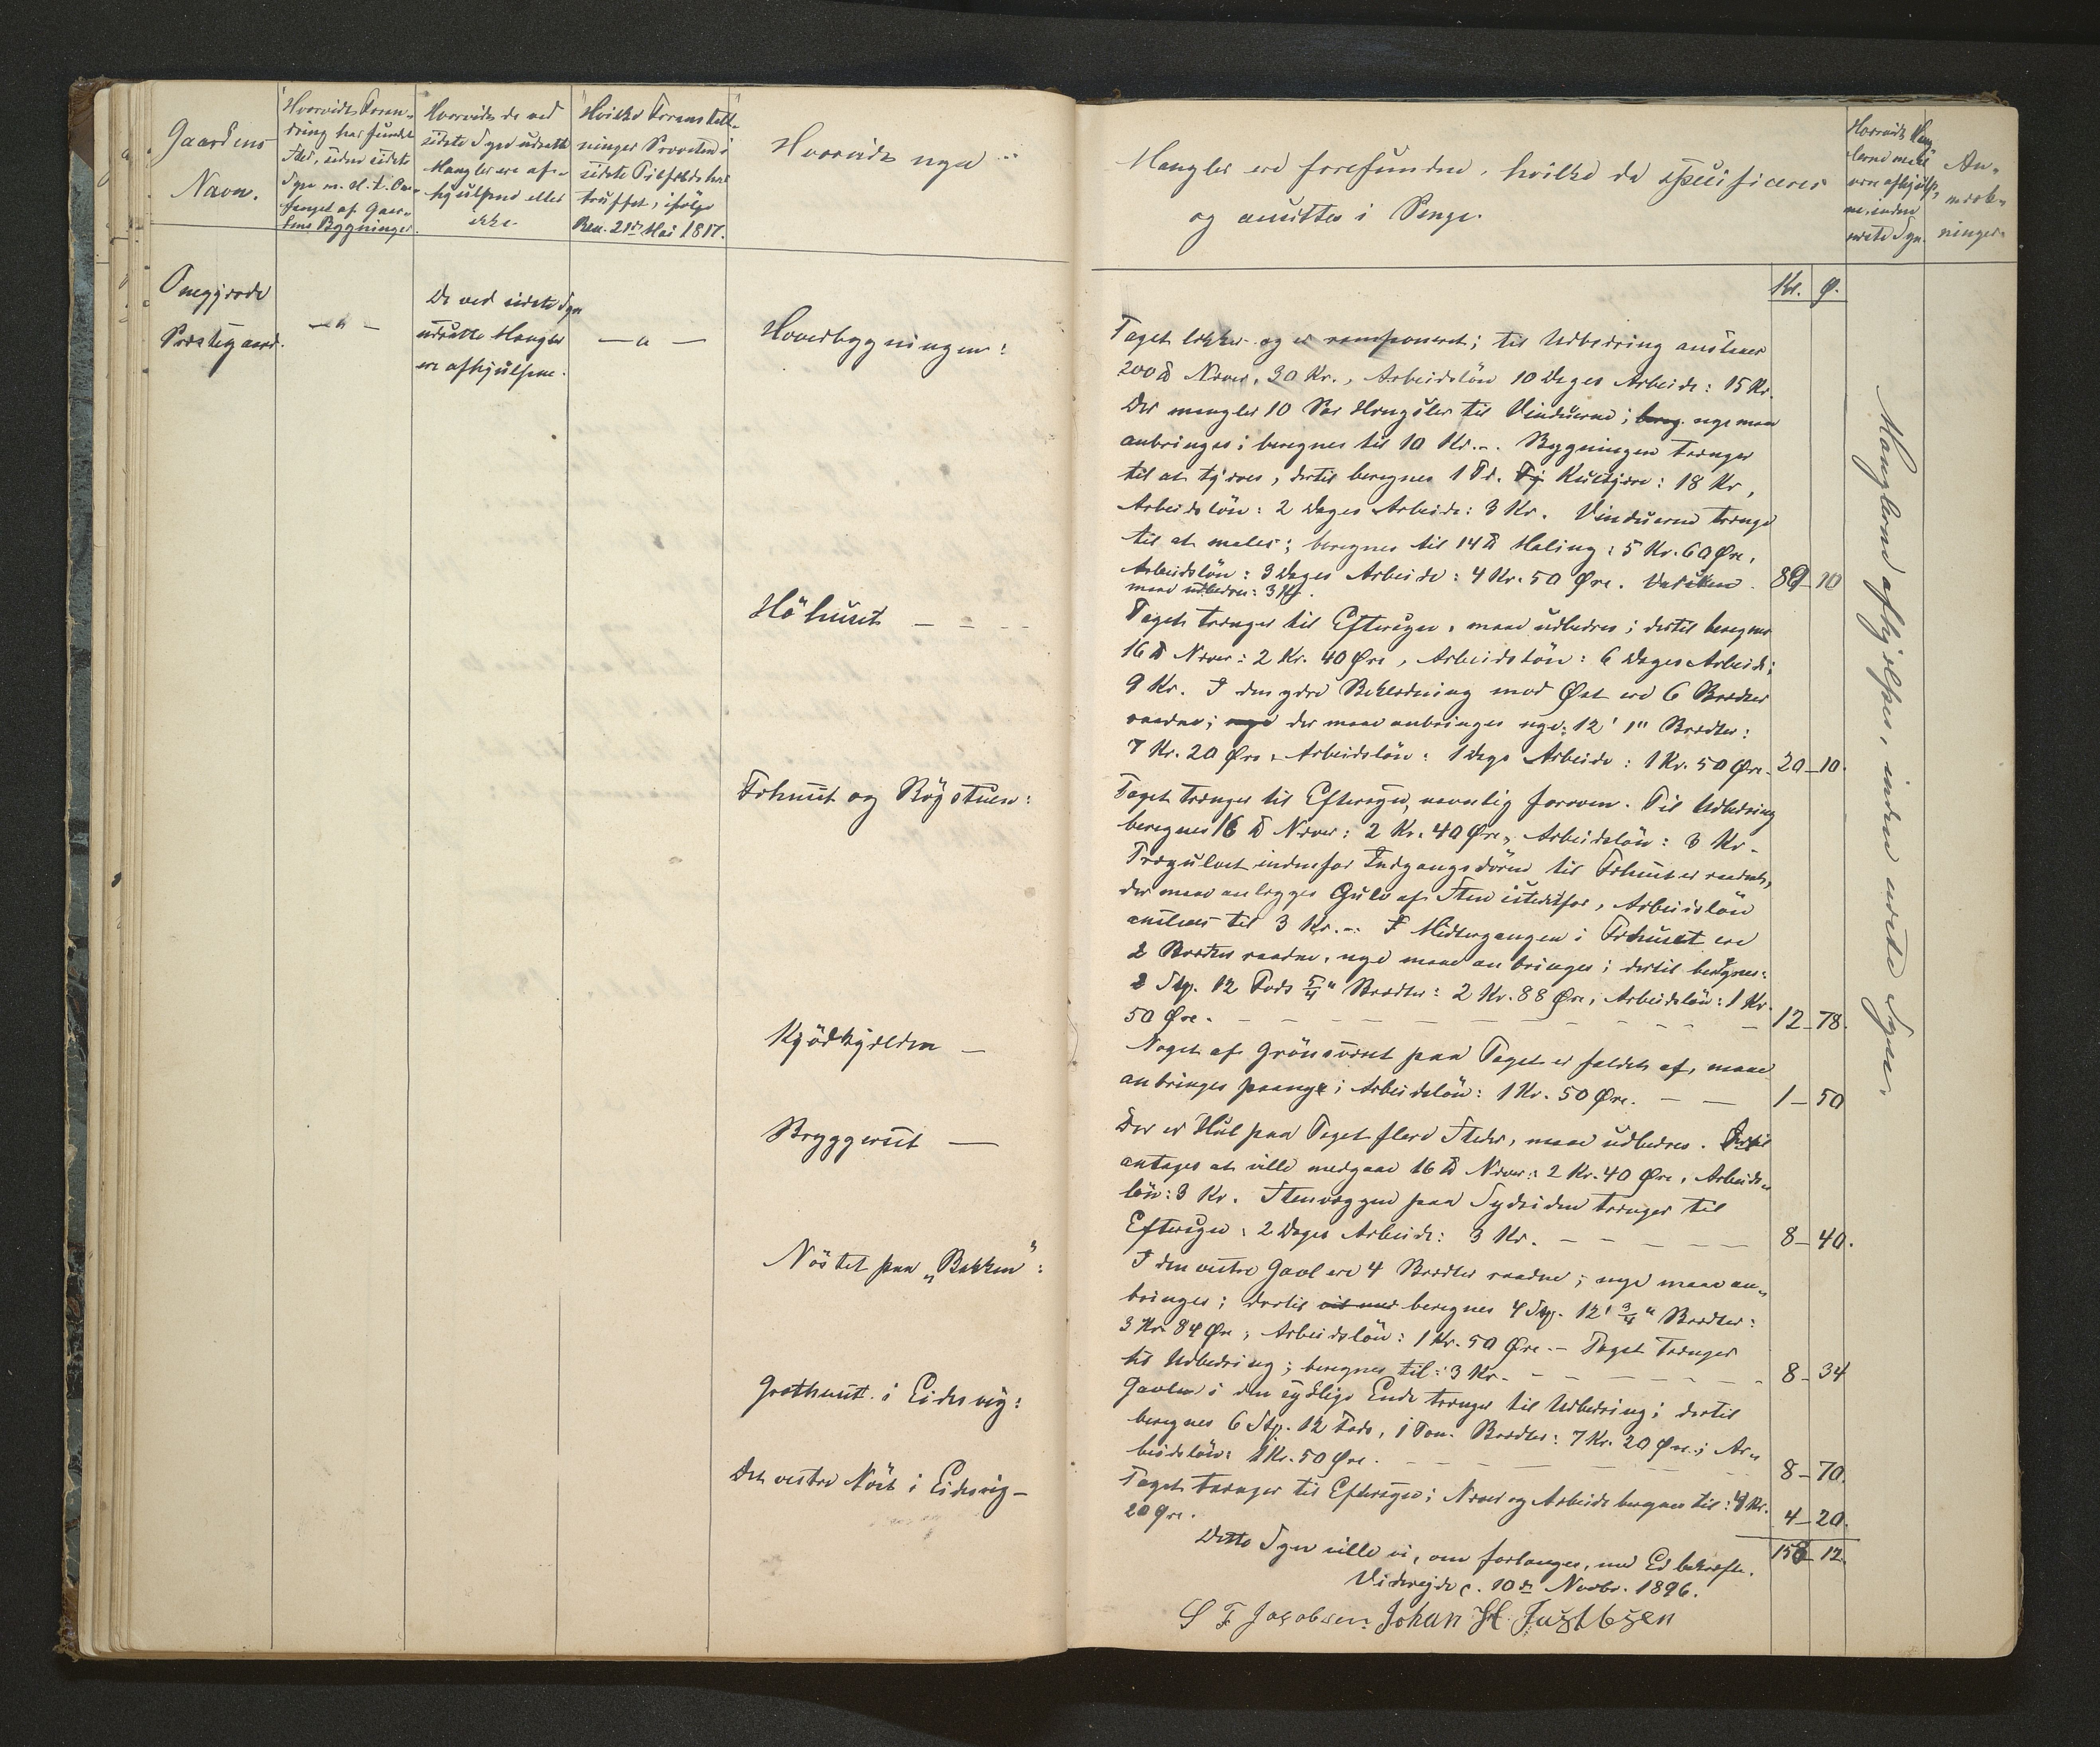 Gaardens
Navn.
Hvorvidt Foran-
dring har fundet
Sted, siden sidste
Syn m. H. t. Om-
fanget af Gaar-
dens Bygninger.
Hvorvidt de ved
sidste Syn udsatte
Mangler ere af-
hjulpne eller
ikke.
Hvilke Foranstalt-
ninger Provsten i
sidste Tilfælde har
truffet, ifølge
Res. 21de Mai 1817.
Hvorvidt nye
Mangler ere forefundne, hvilke da specificeres
og ansættes i Penge.
Hvorvidt Mang-
lerne maae
være afhjulp-
ne inden
næste Syn.
An-
mærk-
ninger.
Kr. Ø.
Præstegaard.
De ved sidste Syn
udsatte Mangler
ere afhjulpne.
Hovedbygningen:
Taget lækker og er ramponeret; til Udbedring ansættes
200 ℔ Næver, 30 Kr., Arbeidsløn 10 Dages Arbeide: 15 Kr.
Der mangler 10 Par Hængsler til Vinduerne; nye maa
anbringes; beregnes til 10 Kr. Bygningen trænger
til at tjæres, dertil beregnes 1 Td. Kultjære: 18 Kr,
Arbeidsløn: 2 Dages Arbeide: 3 Kr. Vinduerne trænge
til at males; beregnes til 14 ℔ Maling: 5 Kr. 60 Øre,
Arbeidsløn: 3 Dages Arbeide: 4 Kr. 50 Øre.
maae udbedres: 3 Kr.
89 - 10
Höhuset
Taget trænger til Eftersyn, maae udbedres; dertil beregnes
16 ℔ Næver: 2 Kr. 40 Øre, Arbeidslön: 6 Dages Arbeide;
9 Kr. I den ydre Beklædning mod Øst ere 6 Brædder
raadne; der maae anbringes nye: 12' 1" Brædder:
7 Kr. 20 Øre, Arbeidslön: 1 Dags Arbeide: 1 Kr. 50 Øre. 20 - 10.
Fæhuset og Rögstuen:
Taget trænger til Eftersyn, navnlig foroven. Til Udbedring
beregnes 16 ℔ Næver: 2 Kr. 40 Øre, Arbeidslön: 3 Kr.
Trægulvet indenfor Indgangsdøren til Fæhuset er raadnet,
der maae anlægges Gulv af Sten istedetfor, Arbeidslön
ansættes til 3 Kr. I Midtergangen i Fæhuset ere
2 Brædder raadne, nye maae anbringes; dertil beregnes:
2 Stp. 12 Fods 5/4" Brædder: 2 Kr. 88 Øre, Arbeidslön: 1 Kr.
50 Øre. 12 - 78.
Kjødhjelden
Noget af Grönsværet paa Taget er faldet af, maae
anbringes paanye; Arbeidslön: 1 Kr. 50 Øre. 1 - 50
Bryggerset
Der er Hul paa Taget flere Steder, maae udbedres. Dertil
antages at ville medgaae 16 ℔ Næver: 2 Kr. 40 Øre, Arbeids-
lön: 3 Kr. Stenvæggen paa Sydsiden trænger til
Eftersyn, 2 Dages Arbeide: 3 Kr. 8 - 40.
Nöstet paa „Bakken":
I den vestre Gavl ere 4 Brædder raadne; nye maae an-
bringes; dertil beregnes 4 Stp. 12' 3/4" Brædder:
3 Kr. 84 Øre; Arbeidslön: 1 Kr. 50 Øre. - Taget trænger
til Udbedring; beregnes til: 3 Kr. 8 - 34
i Eidsvig:
Gavlen i den sydlige Ende trænger til Udbedring; dertil
beregnes 6 Stp. 12 Fods, 1 Tom. Brædder: 7 Kr. 20 Øre; Ar-
beidslön: 1 Kr. 50 Øre. 8 - 70.
Det vestre Nöst i Eidsvig
Taget trænger til Eftersyn; Næver og Arbeide beregnes til: 4 Kr.
20 Øre. 4 - 20.
12.
Dette Syn ville vi, om forlanges, med Ed bekræfte.
Videreide, 10de Novbr. 1896.
S F Jacobsen. Johan H.
Manglerne afhjelpes, inden næste Syn.